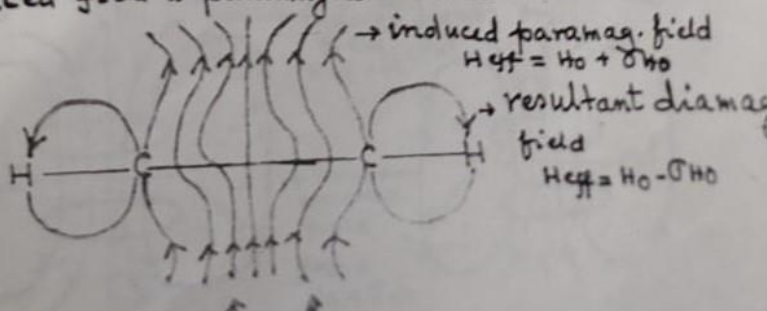 → induced paramag. field
Heff = H0 + σH0
→ resultant diamag
field
Heff = H0 - σH0
H C C H